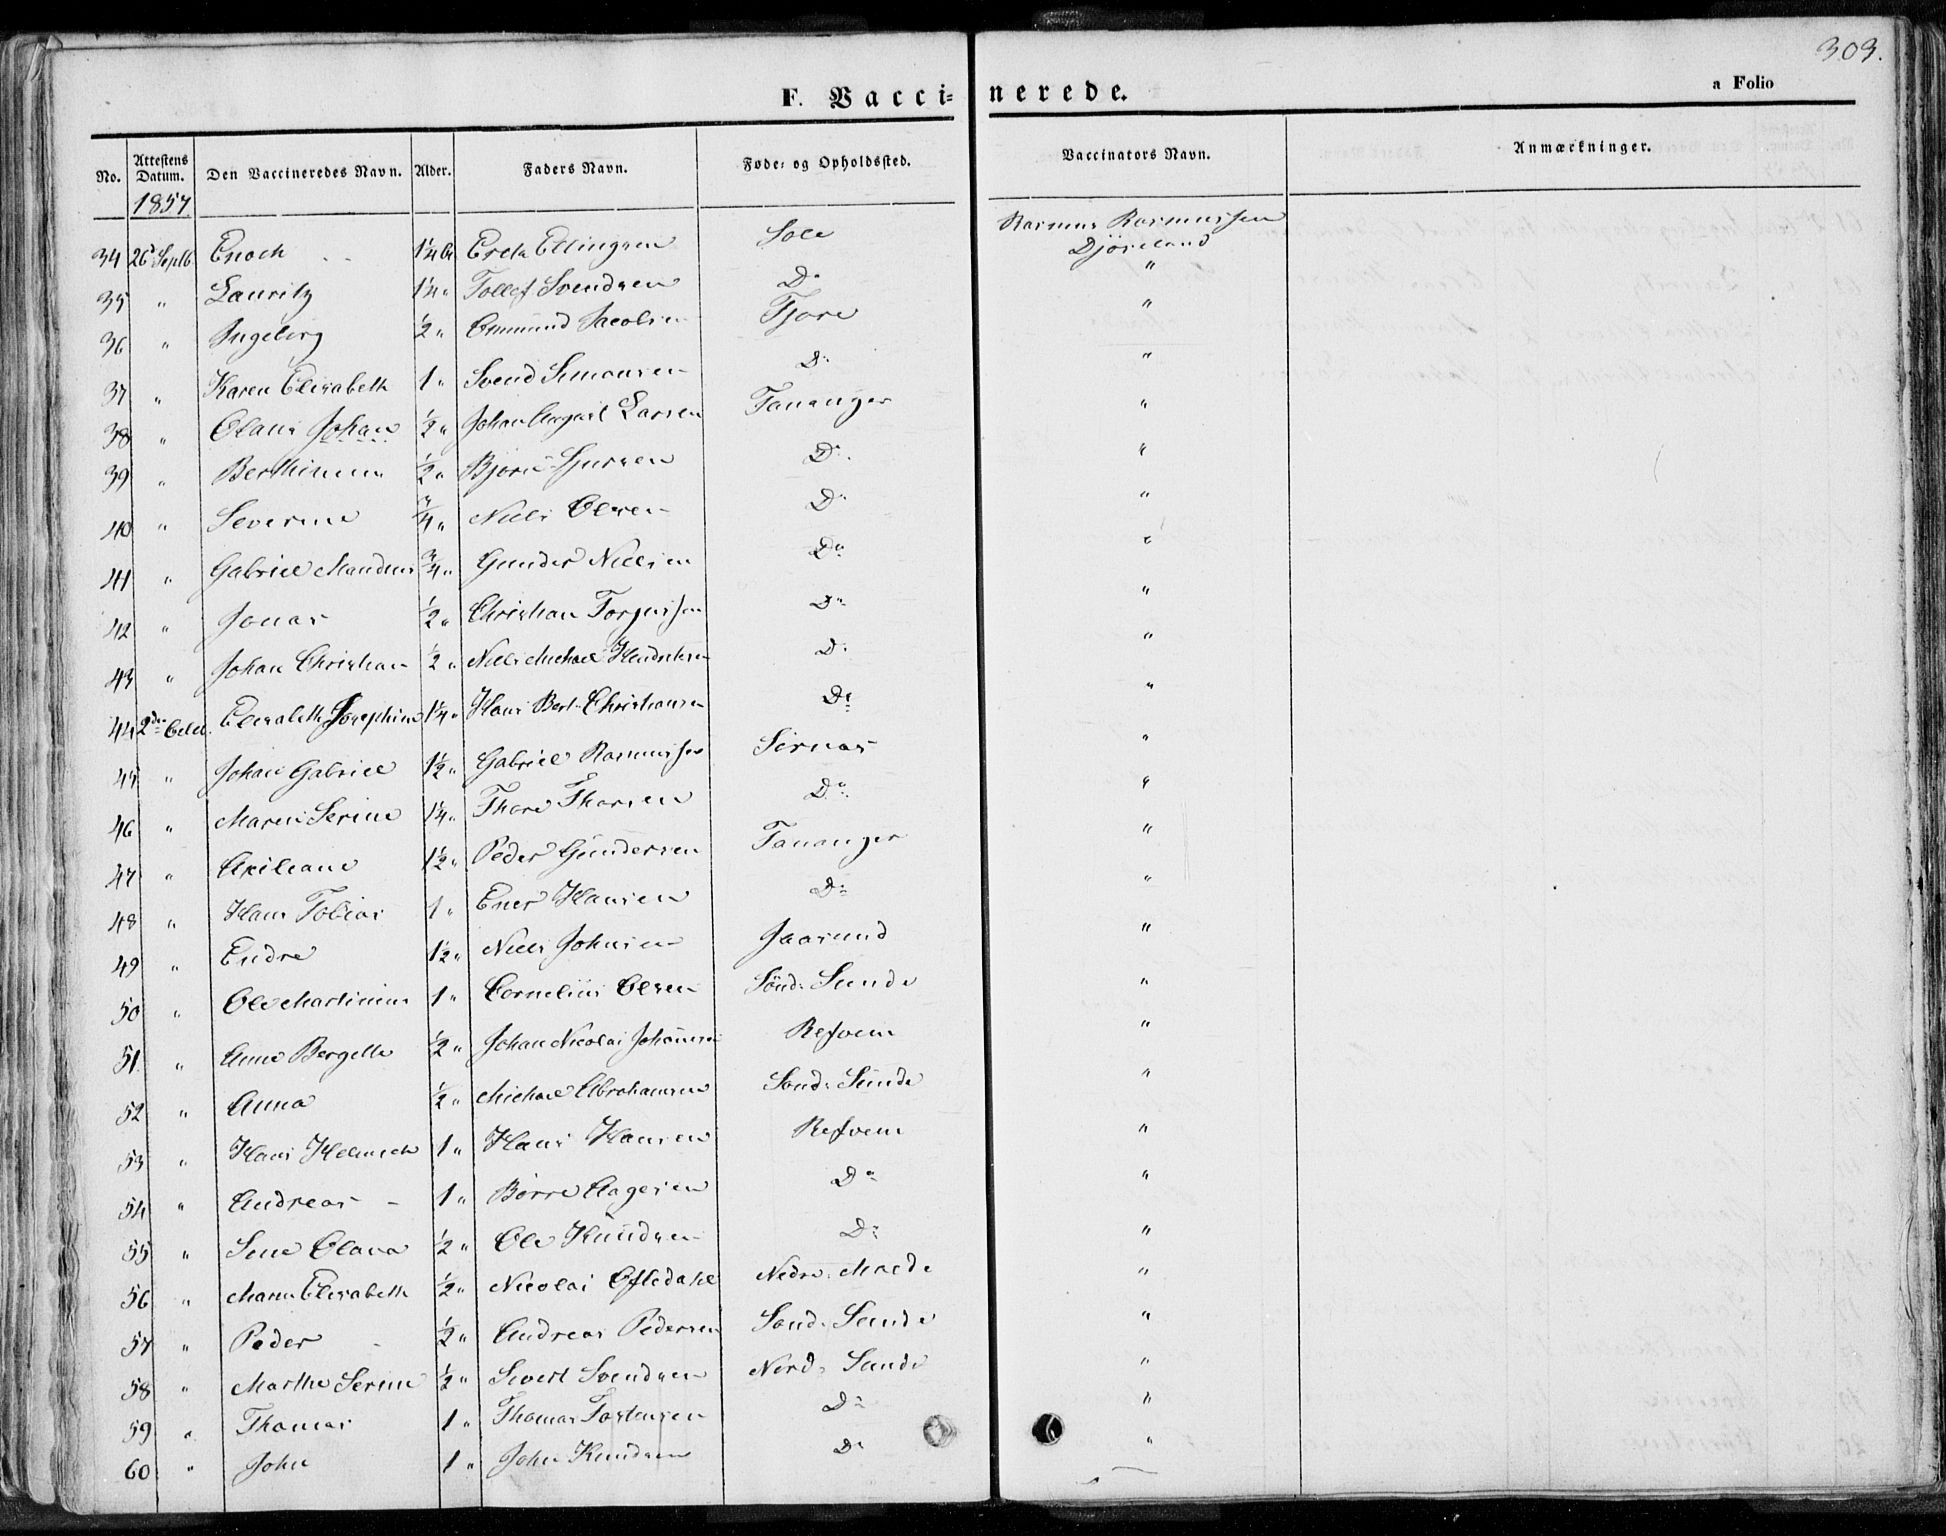 303.
F. Vaccinerede.
a Folio
No. Attestens Datum. Den Vaccineredes Navn. Alder. Faders Navn. Føde- og Opholdssted. Vaccinators Navn. Anmærkninger.
1857
34 26 Septb Enoch 1¼ Ellingsen Sole Rasmus Rasmussen
35 " Lauritz 1¼ " Tollef Svendsen Do "
36 " Ingeborg ½ " Ommund Jacobsen Tjore "
37 " Karen Elisabeth 1 " Svend Simonsen Do "
38 " Olaus Johan ½ " Johan August Larsen Tananger "
39 " ½ " Do "
40 " Severine ¾ " Niels Olsen Do "
41 " Gabriel Mandius ¾ " Gunder Nielsen Do "
42 " Jonas ½ " Christian Torgersen Do "
43 " Johan Christian ½ " Niels Michael Hendriksen Do "
44 2den Octob. Elisabeth Josephine 1¼ " Hans Bert. Christiansen Do "
45 " Johan Gabriel 1½ " Gabriel Rasmussen "
46 " Maren Serine 1¼ " Thore Thorsen Do "
47 " Axeliane 1½ " Peder Gundersen Tananger "
48 " Hans Tobias 1 " Ener Hansen Do "
49 " Endre 1½ " Niels Johnsen Jaasund "
50 " Ole Martinius 1 " Cornelius Olsen Sönd: Sunde "
51 " Anne Bergette ½ " Johan Nicolai Johnsen Refvem "
52 " Anna ½ " Michael Abrahamsen Sönd: Sunde "
53 " Hans Helmich 1 " Hans Hansen Refvem "
54 " Andreas - 1 " Börre Aagesen Do "
55 " Sine Olava ½ " Ole Knudsen Do "
56 " Maren Elisabeth ½ " Nicolai Oftedahl Nedre Mæde "
57 " Peder - ½ " Andreas Pedersen Sönd: Sunde "
58 " Marthe Serine ½ " Sivert Svendsen Nord: Sunde "
59 " Thomas 1 " Thomas Tostensen Do "
60 " John 1 " John Knudsen Do "